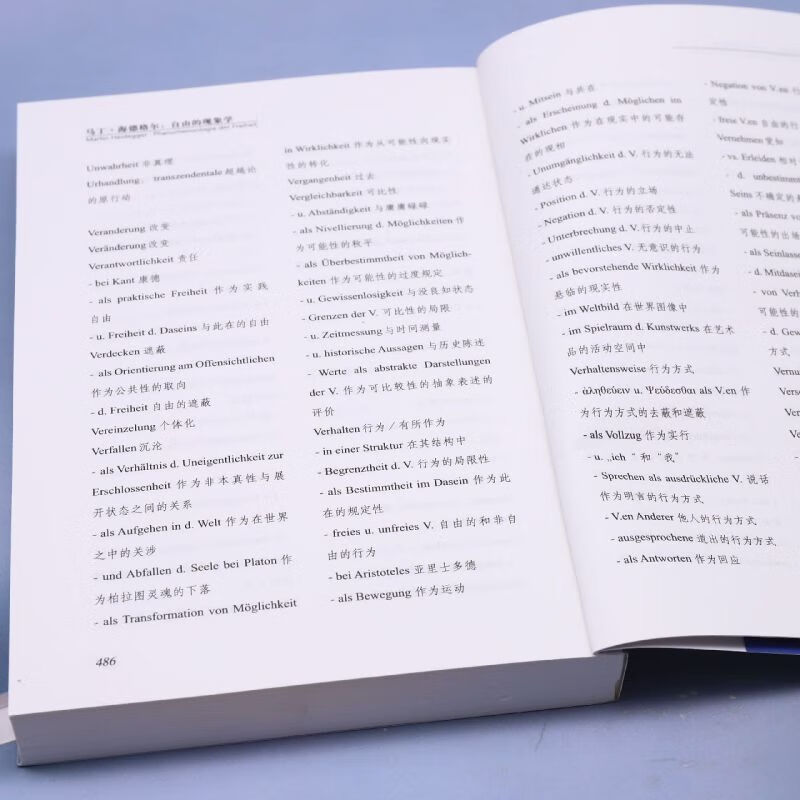 马丁·海德格尔：自由的现象学
Martin Heidegger: Phänomenologie der Freiheit
Unwahrheit 非真理
Urhandlung, transzendentale 超越论
的原行动
Veranderung 改变
Veränderung 改变
Verantwortlichkeit 责任
- bei Kant 康德
- als praktische Freiheit 作为实践
自由
- u. Freiheit d. Daseins 与此在的自由
Verdecken 遮蔽
- als Orientierung am Offensichtlichen
作为公共性的取向
- d. Freiheit 自由的遮蔽
Vereinzelung 个体化
Verfallen 沉沦
- als Verhältnis d. Uneigentlichkeit zur
Erschlossenheit 作为非本真性与展
开状态之间的关系
- als Aufgehen in d. Welt 作为在世界
之中的关涉
- und Abfallen d. Seele bei Platon 作
为柏拉图灵魂的下落
- als Transformation von Möglichkeit
486
in Wirklichkeit 作为从可能性向现实
性的转化
Vergangenheit 过去
Vergleichbarkeit 可比性
- u. Abständigkeit 与庸庸碌碌
- als Nivellierung d. Möglichkeiten 作
为可能性的敉平
- als Überbestimmtheit von Möglich-
keiten 作为可能性的过度规定
- u. Gewissenlosigkeit 与没良知状态
- Grenzen der V. 可比性的局限
- u. Zeitmessung 与时间测量
- u. historische Aussagen 与历史陈述
- Werte als abstrakte Darstellungen
der V. 作为可比较性的抽象表述的
评价
Verhalten 行为／有所作为
- in einer Struktur 在其结构中
- Begrenztheit d. V. 行为的局限性
- als Bestimmtheit im Dasein 作为此
在的规定性
- freies u. unfreies V. 自由的和非自
由的行为
- bei Aristoteles 亚里士多德
- als Bewegung 作为运动
- u. Mitsein 与共在
- als Erscheinung d. Möglichen im
Wirklichen 作为在现实中的可能存
在的现相
- Unumgänglichkeit d. V. 行为的无法
通达状态
- Position d. V. 行为的立场
- Negation d. V. 行为的否定性
- Unterbrechung d. V. 行为的中止
- unwillentliches V. 无意识的行为
- als bevorstehende Wirklichkeit 作为
悬临的现实性
- im Weltbild 在世界图像中
- im Spielraum d. Kunstwerks 在艺术
品的活动空间中
Verhaltensweise 行为方式
- ἀληθεύειν u. Ψεύδεσθαι als V.en 作
为行为方式的去蔽和遮蔽
- als Vollzug 作为实行
- u. „ich“ 和“我”
- Sprechen als ausdrückliche V. 说话
作为明言的行为方式
- V.en Anderer 他人的行为方式
- ausgesprochene 道出的行为方式
- als Antworten 作为回应
- Negation von V.en
定性
- freie V.en 自由的行
Vernehmen 觉知
- vs. Erleiden 相对
- d. unbestimmt
Seins 不确定的
- als Präsenz vo
可能性的出场
- als Seinlasse
- d. Mitdasein
- von Verh
可能性的
- d. Gew
方式
Vernu
Verse